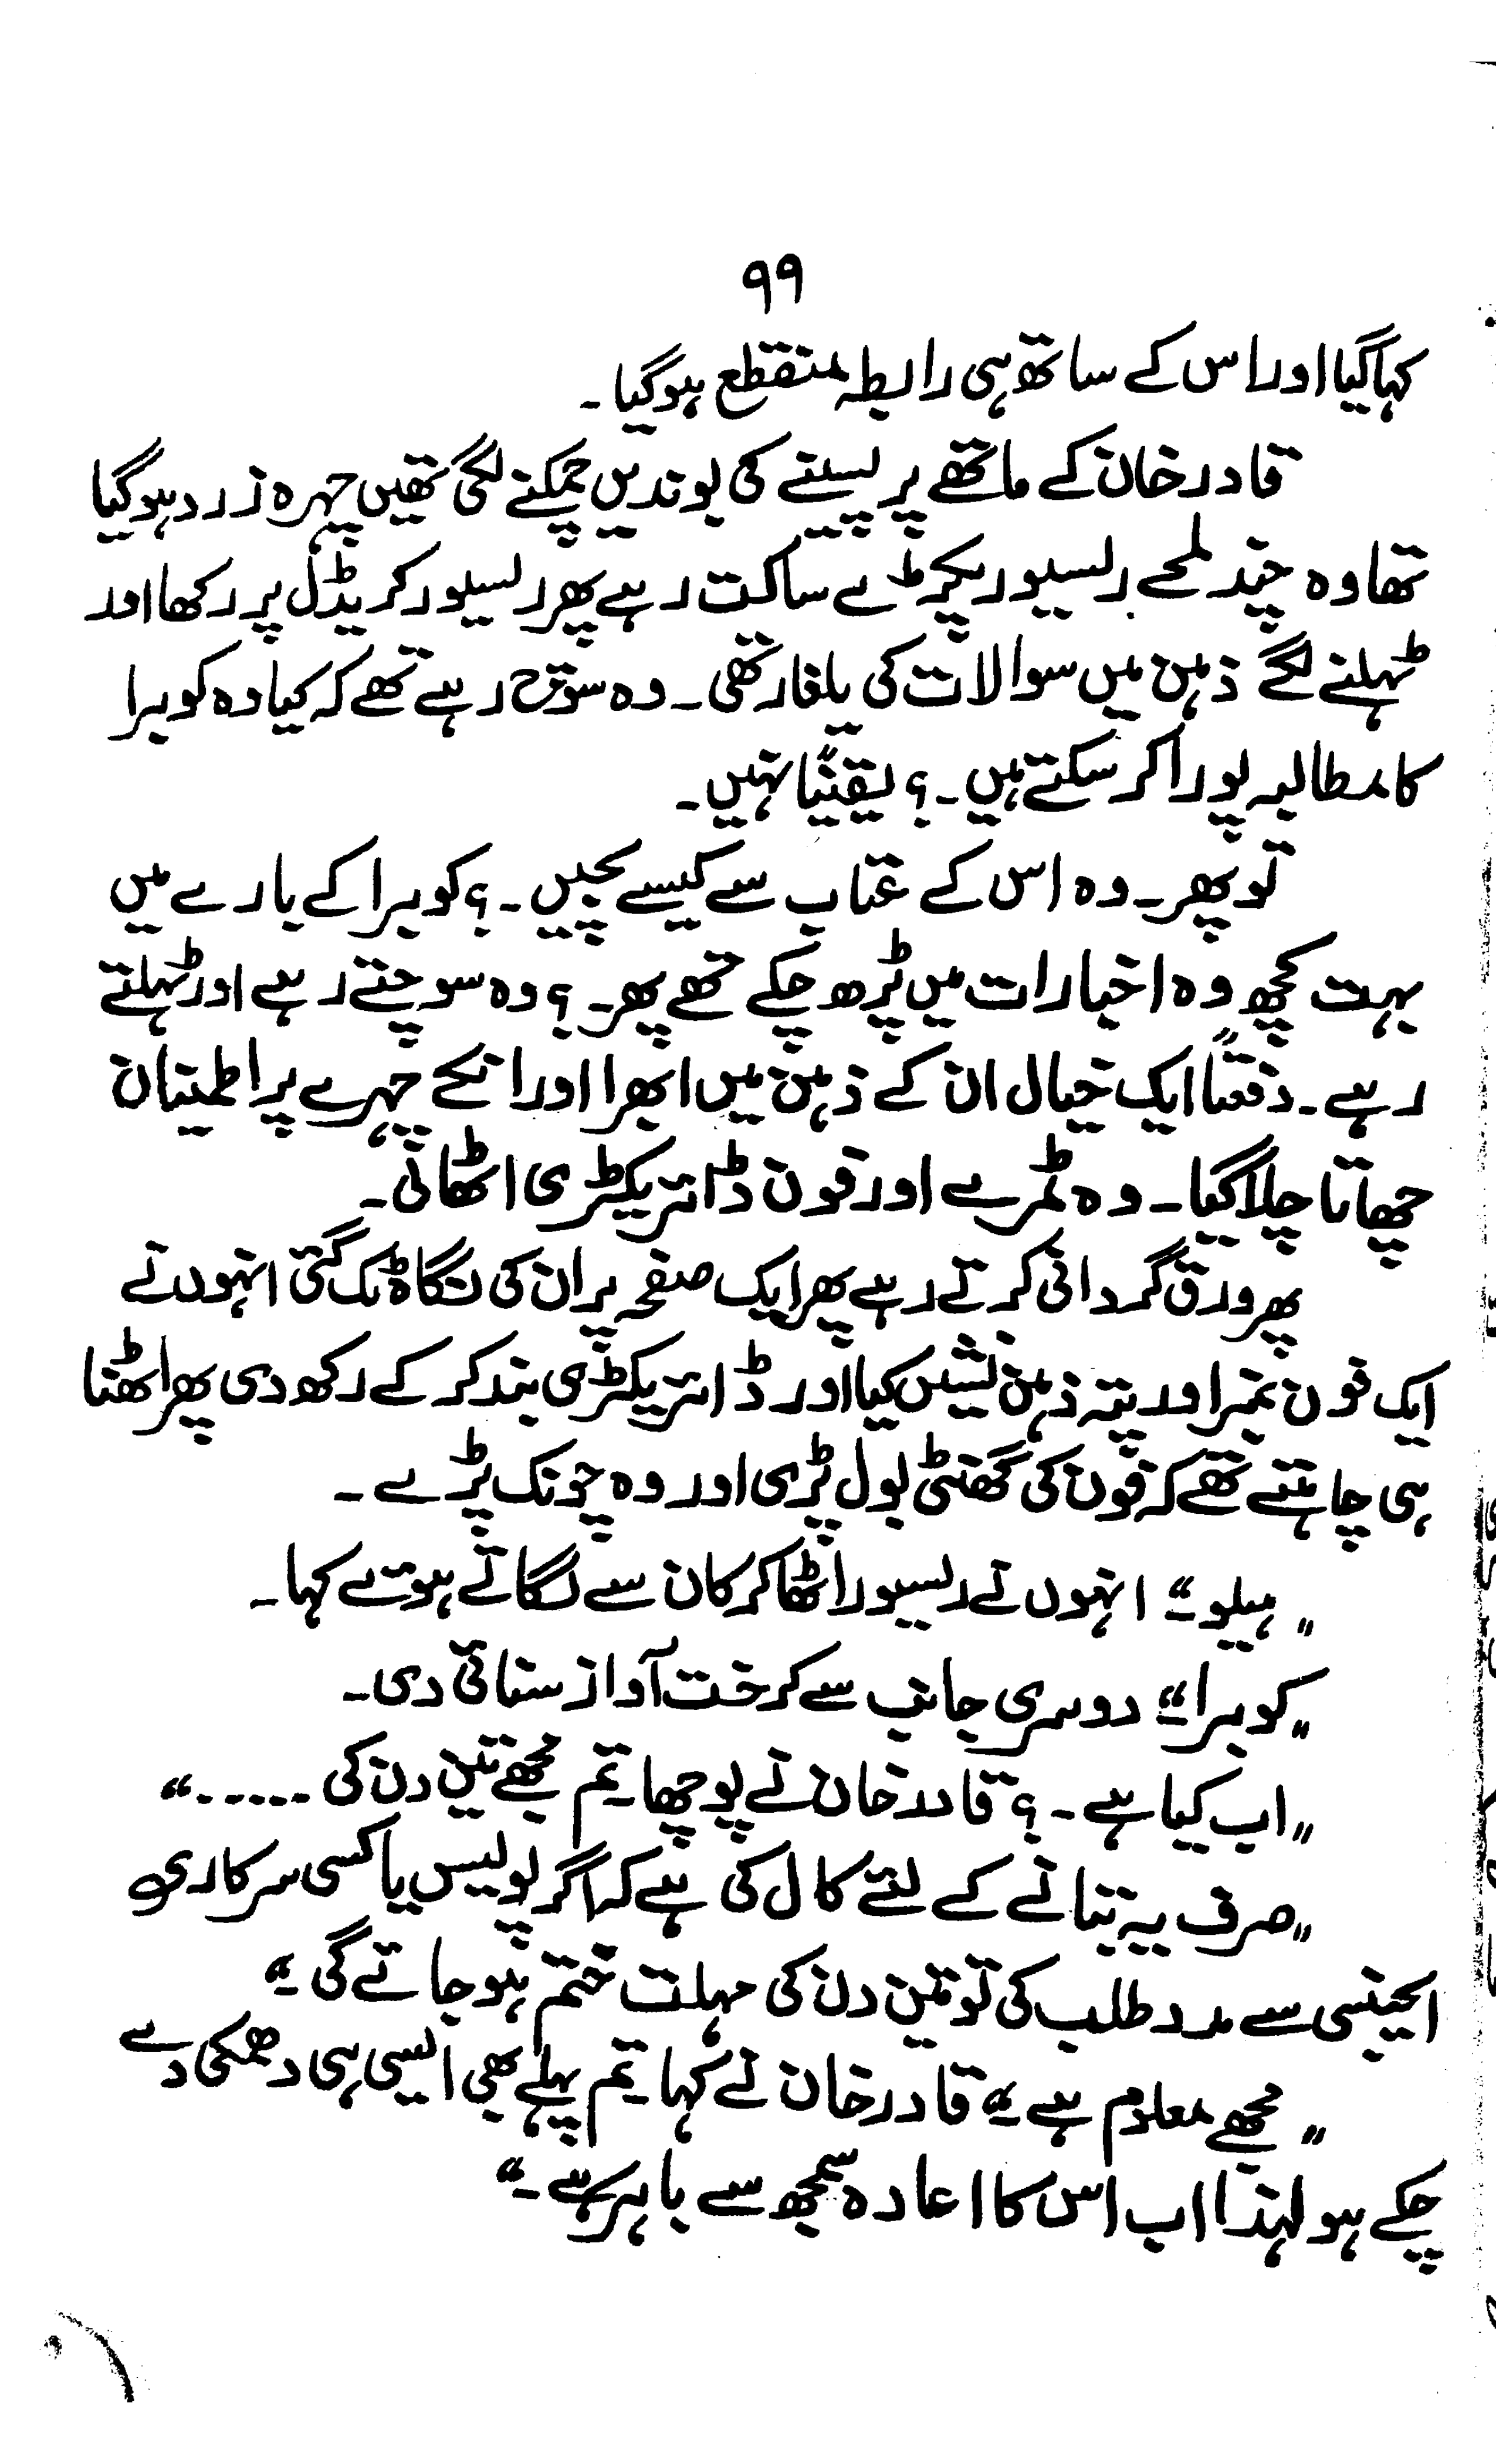 ۹۹
کہا گیا اور اس کے ساتھ ہی رابطہ منقطع ہو گیا۔
قادر خان کے ماتھے پر پسینے کی بوندیں چمکنے لگی تھیں چہرہ زرد ہو گیا
تھا وہ چند لمحے ریسیور پکڑے ساکت رہے پھر ریسیور کریڈل پر رکھا اور
ٹہلنے لگے ذہن میں سوالات کی یلغار تھی۔ وہ سوچ رہے تھے کہ کیا وہ کوبرا
کا مطالبہ پورا کر سکتے ہیں۔؟ یقیناً نہیں۔
تو پھر۔ وہ اس کے عتاب سے کیسے بچیں۔؟ کوبرا کے بارے میں
بہت کچھ وہ اخبارات میں پڑھ چکے تھے پھر۔؟ وہ سوچتے رہے اور ٹہلتے
رہے۔ دفعتاً ایک خیال ان کے ذہن میں ابھرا اور انکے چہرے پر اطمینان
چھاتا چلا گیا۔ وہ ٹھہرے اور فون ڈائریکٹری اٹھائی۔
پھر ورق گردانی کرتے رہے پھر ایک صفحہ پر ان کی نگاہ ٹک گئی انہوں نے
ایک فون نمبر اور پتہ ذہن نشیں کیا اور ڈائریکٹری بند کر کے رکھ دی پھر اٹھنا
ہی چاہتے تھے کہ فون کی گھنٹی بول پڑی اور وہ چونک پڑے۔
"ہیلو۔" انہوں نے ریسیور اٹھا کر کان سے لگاتے ہوئے کہا۔
"کوبرا۔" دوسری جانب سے کرخت آواز سنائی دی۔
"اب کیا ہے۔؟ قادر خان نے پوچھا۔ تم مجھے تین دن کی ......"
"صرف یہ بتانے کے لئے کال کی ہے کہ اگر پولیس یا کسی سرکاری
ایجینسی سے مدد طلب کی تو تین دن کی مہلت ختم ہو جائے گی۔"
"مجھے معلوم ہے۔" قادر خان نے کہا۔ تم پہلے بھی ایسی ہی دھمکی دے
چکے ہو لہٰذا اب اس کا اعادہ سمجھ سے باہر ہے۔"